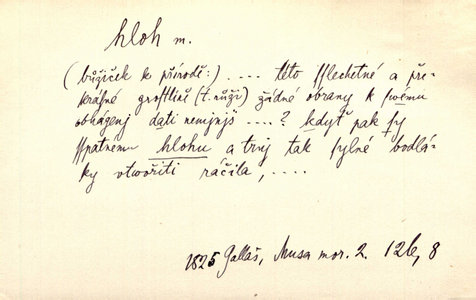 hloh m.
(bůžiček k přírodě:) .... této sslechetné a pře-
krásné grostlině (t. růži) žádné obrany k swému
obhágení dati nemjnjš ....? když pak sy
sspatnému hlohu a trnj tak sylné bodlá-
ky vtwořiti ráčila, ....
1825 Gallaš, Musa mor. 2. 8